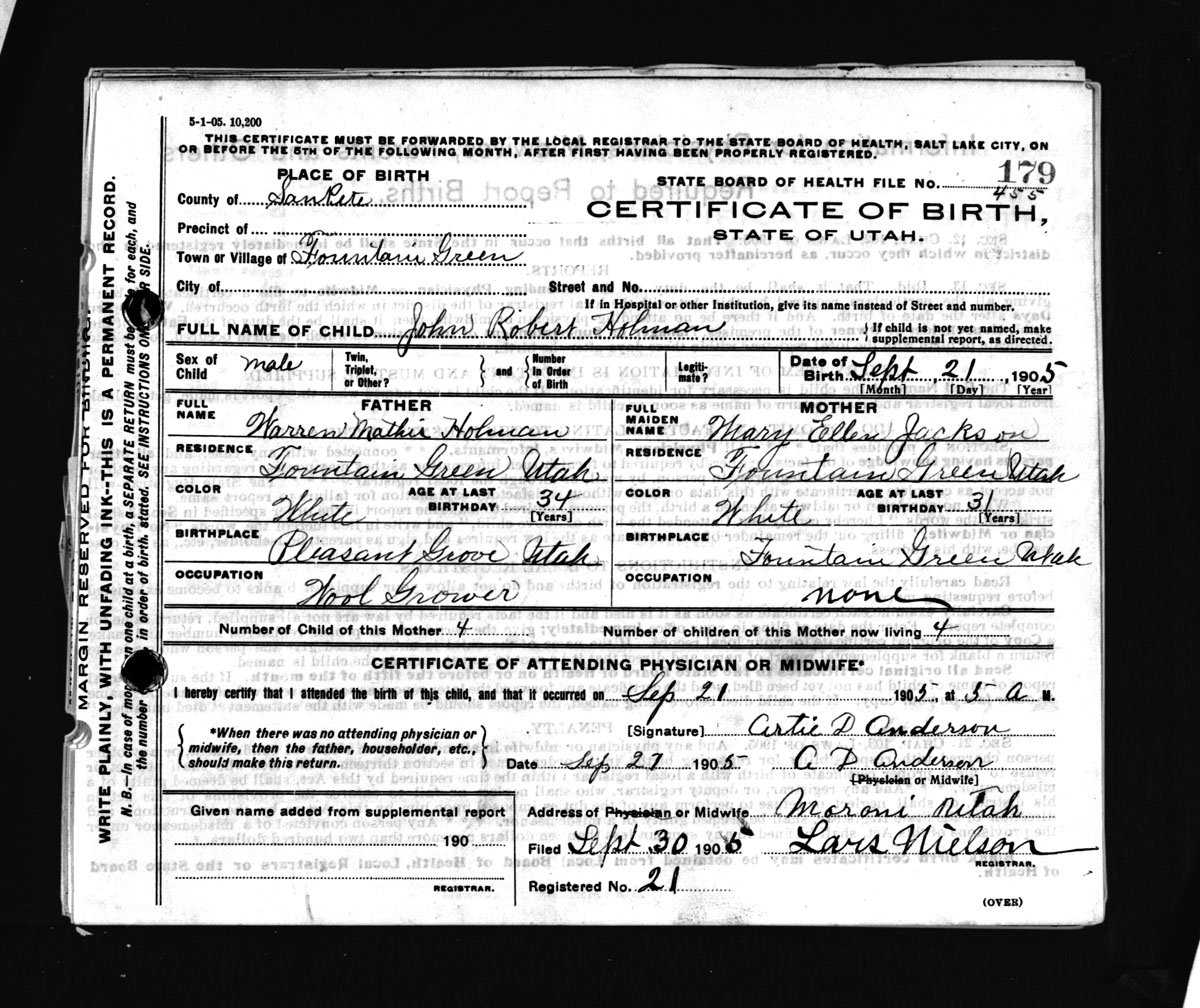 5-1-05. 10,200
THIS CERTIFICATE MUST BE FORWARDED BY THE LOCAL REGISTRAR TO THE STATE BOARD OF HEALTH, SALT LAKE CITY, ON
OR BEFORE THE 5TH OF THE FOLLOWING MONTH, AFTER FIRST HAVING BEEN PROPERLY REGISTERED.
179
PLACE OF BIRTH
STATE BOARD OF HEALTH FILE NO.
455
County of SanPete
CERTIFICATE OF BIRTH,
Precinct of
STATE OF UTAH.
Town or Village of Fountain Green
City of Street and No.
If in Hospital or other Institution, give its name instead of Street and number.
FULL NAME OF CHILD John Robert Holman { If child is not yet named, make supplemental report, as directed.
Sex of Child male Twin, Triplet, or Other? } and { Number in Order of Birth Legitimate? Date of Birth Sept, 21, 1905
[Month] [Day] [Year]
FATHER
FULL NAME Warren Mathis Holman
RESIDENCE Fountain Green Utah
COLOR White AGE AT LAST BIRTHDAY 34
[Years]
BIRTHPLACE Pleasant Grove Utah
OCCUPATION Wool Grower
MOTHER
FULL MAIDEN NAME Mary Ellen Jackson
RESIDENCE Fountain Green Utah
COLOR White AGE AT LAST BIRTHDAY 31
[Years]
BIRTHPLACE Fountain Green Utah
OCCUPATION none
Number of Child of this Mother 4 Number of children of this Mother now living 4
CERTIFICATE OF ATTENDING PHYSICIAN OR MIDWIFE*
I hereby certify that I attended the birth of this child, and that it occurred on Sep 21 1905 at 5 a M.
{ *When there was no attending physician or
midwife, then the father, householder, etc.,
should make this return. }
[Signature] Artie D Anderson
Date Sep 27 1905 A D Anderson
[Physician or Midwife]
Given name added from supplemental report
190
REGISTRAR.
Address of Physician or Midwife Moroni Utah
Filed Sept 30 1905 Lars Nielson
REGISTRAR.
Registered No. 21
(OVER)
MARGIN RESERVED FOR BINDING.
WRITE PLAINLY, WITH UNFADING INK--THIS IS A PERMANENT RECORD.
N. B.--In case of more than one child at a birth, a SEPARATE RETURN must be made for each, and
the number in order of birth, stated. SEE INSTRUCTIONS ON OTHER SIDE.